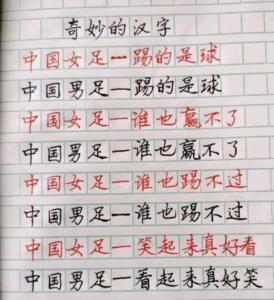 奇妙的汉字
中国女足一踢的是球
中国男足一踢的是球
中国女足一谁也赢不了
中国男足一谁也赢不了
中国女足一谁也踢不过
中国男足一谁也踢不过
中国女足一笑起来真好看
中国男足一看起来真好笑